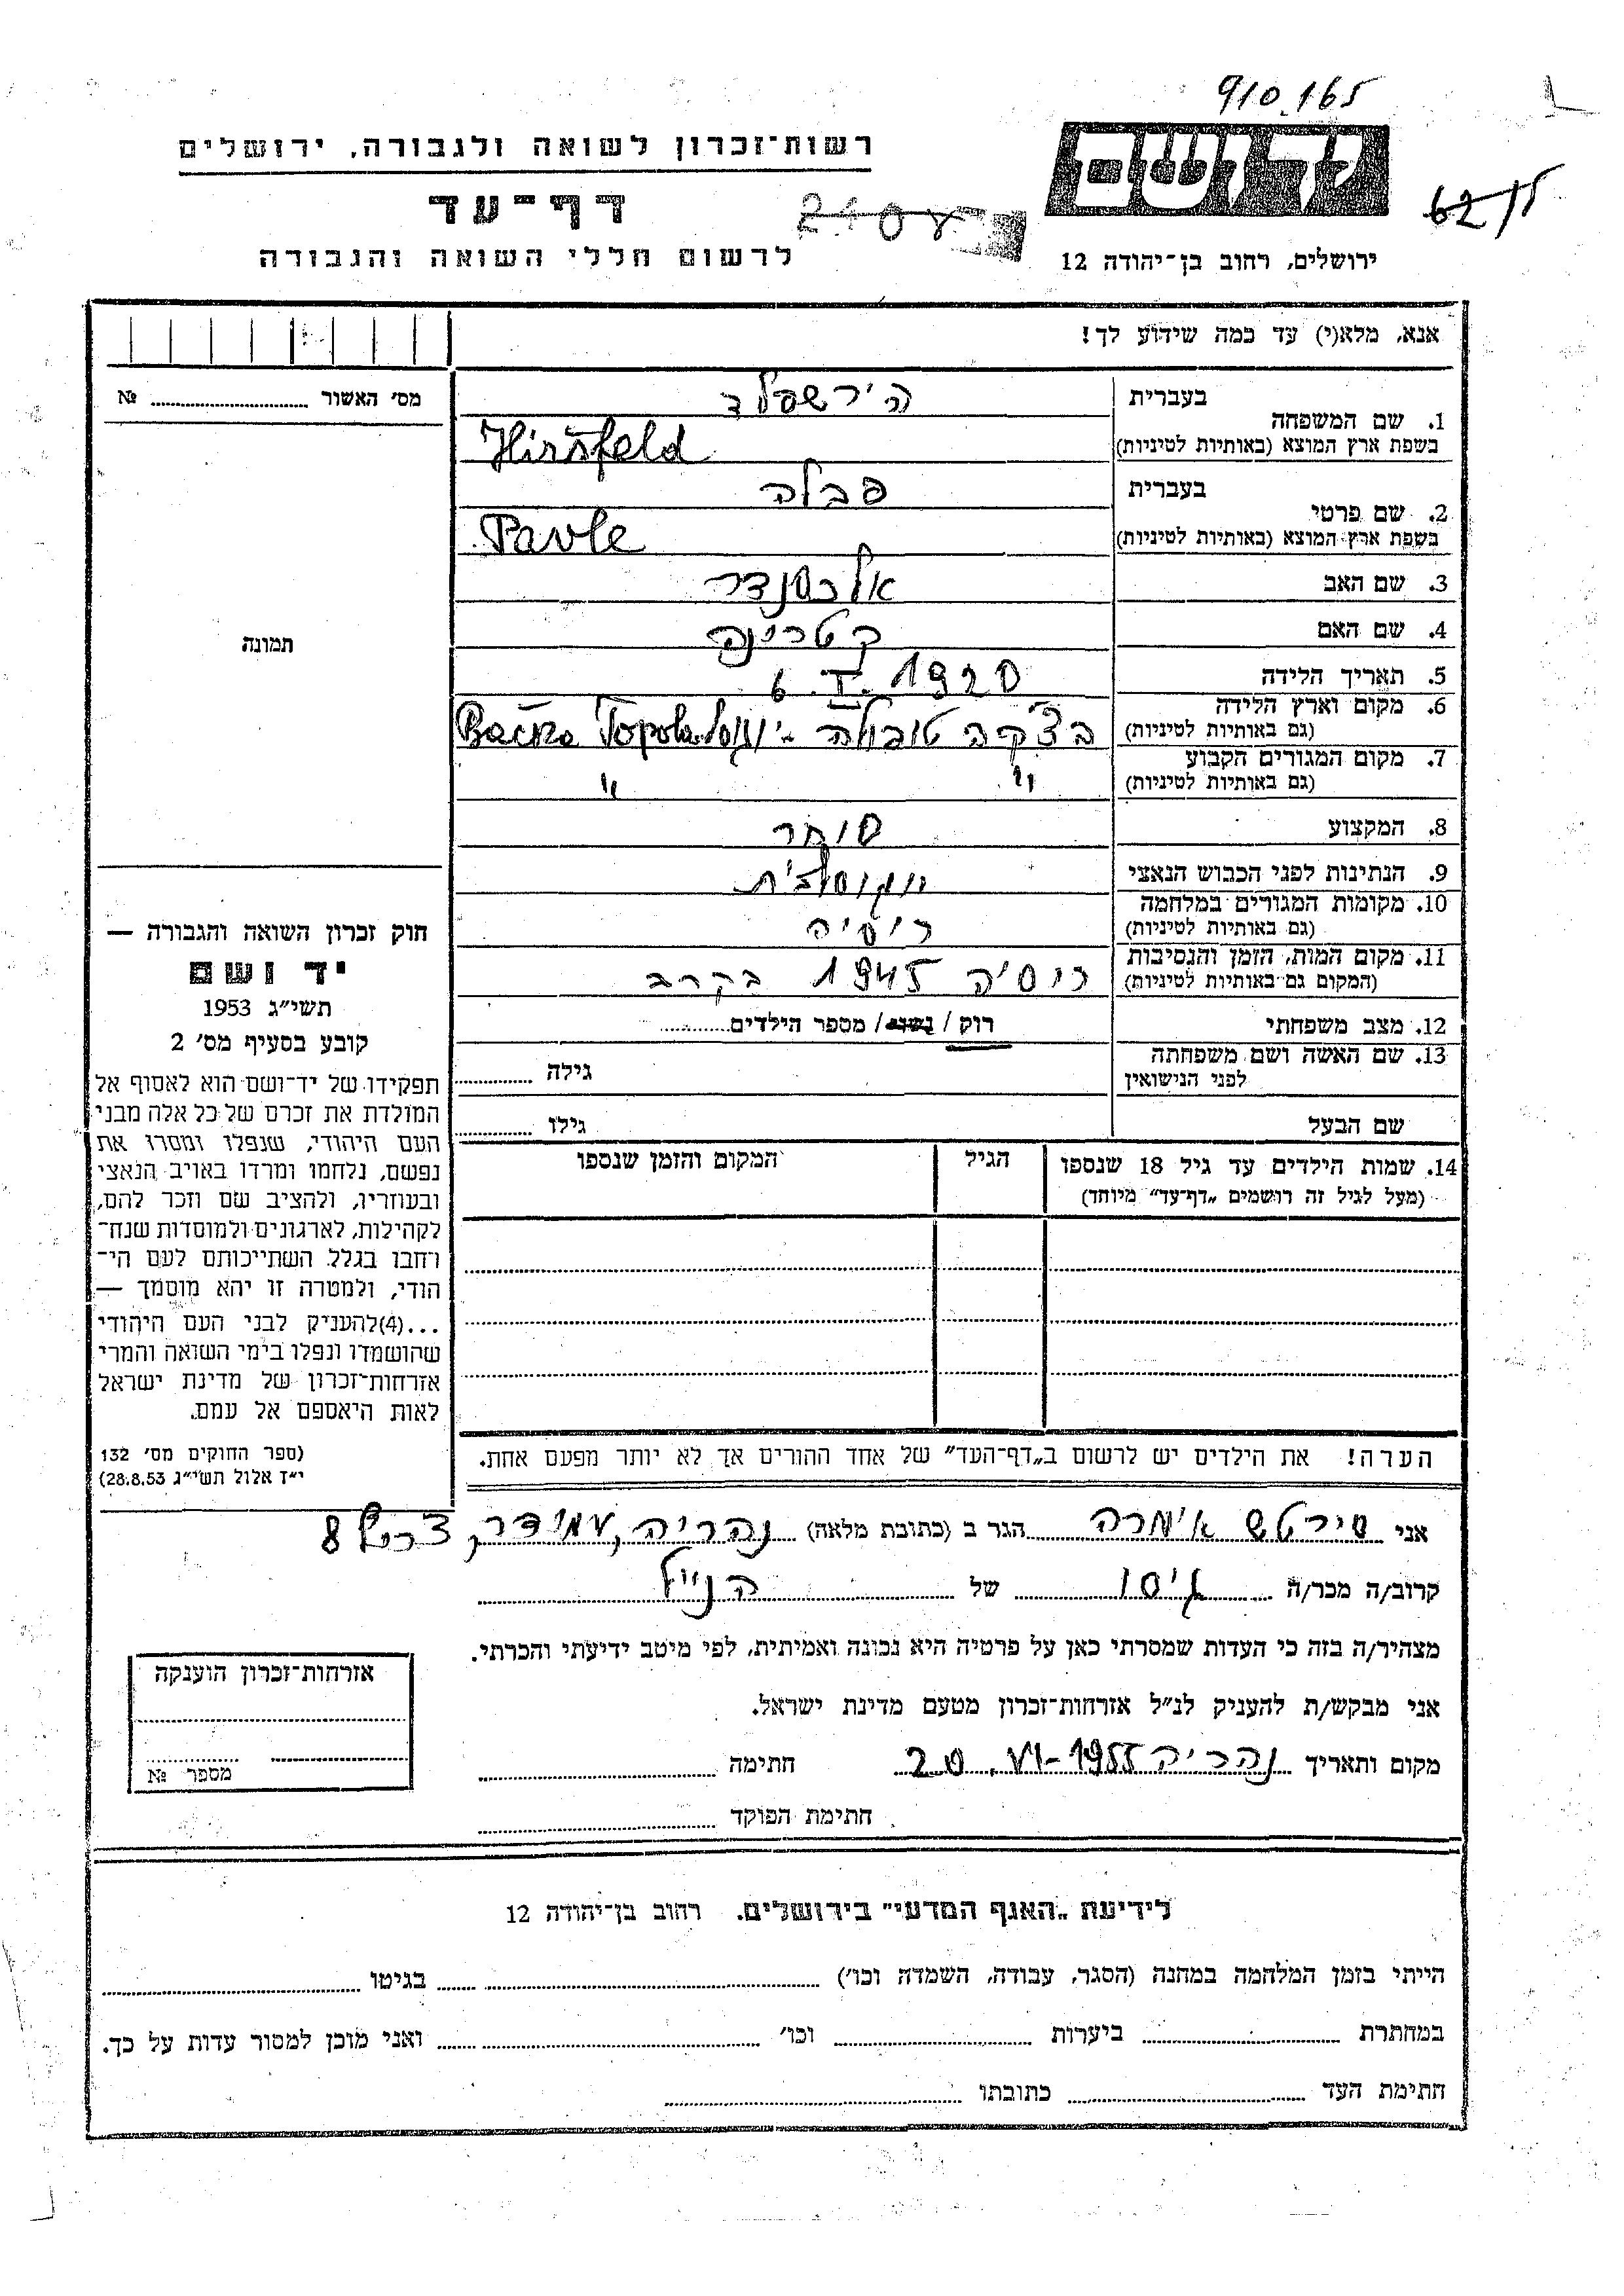 910.165
62/15
יד ושם
רשות־זכרון לשואה ולגבורה, ירושלים
דף־עד
לרשום חללי השואה והגבורה
ירושלים, רחוב בן־יהודה 12
אנא, מלא(י) עד כמה שידוע לך!
מס׳ האשור № 
תמונה
1. שם המשפחה בעברית הירשפלד
בשפת ארץ המוצא (באותיות לטיניות) Hirsfeld
2. שם פרטי בעברית פבלה
בשפת ארץ המוצא (באותיות לטיניות) Pavle
3. שם האב אלכסנדר
4. שם האם קטרינה
5. תאריך הלידה 6. I. 1920
6. מקום וארץ הלידה בצ׳קה טופולה - יוגוסל Bačka Topola
(גם באותיות לטיניות)
7. מקום המגורים הקבוע " "
(גם באותיות לטיניות)
8. המקצוע סוחר
9. הנתינות לפני הכבוש הנאצי יוגוסלבית
10. מקומות המגורים במלחמה רוסיה
(גם באותיות לטיניות)
11. מקום המות, הזמן והנסיבות רוסיה 1945 בקרב
(המקום גם באותיות לטיניות)
12. מצב משפחתי רוק / נשוי / מספר הילדים
13. שם האשה ושם משפחתה גילה
לפני הנישואין
שם הבעל גילו
14. שמות הילדים עד גיל 18 שנספו הגיל המקום והזמן שנספו
(מעל לגיל זה רושמים „דף־עד” מיוחד)
הערה! את הילדים יש לרשום ב„דף־העד” של אחד ההורים אך לא יותר מפעם אחת.
חוק זכרון השואה והגבורה —
יד ושם
תשי״ג 1953
קובע בסעיף מס׳ 2
תפקידו של יד־ושם הוא לאסוף אל
המולדת את זכרם של כל אלה מבני
העם היהודי, שנפלו ומסרו את
נפשם, נלחמו ומרדו באויב הנאצי
ובעוזריו, ולהציב שם וזכר להם,
לקהילות, לארגונים ולמוסדות שנח־
רחבו בגלל השתייכותם לעם הי־
הודי, ולמטרה זו יהא מוסמך —
...(4)להעניק לבני העם היהודי
שהושמדו ונפלו בימי השואה והמרי
אזרחות־זכרון של מדינת ישראל
לאות היאספם אל עמם.
(ספר החוקים מס׳ 132
י״ז אלול תשי״ג 28.8.53)
אני שירטש אימרה הגר ב (כתובת מלאה) נהריה, עמידר, צריף 8
קרוב/ה מכר/ה גיסו של הנ״ל
מצהיר/ה בזה כי העדות שמסרתי כאן על פרטיה היא נכונה ואמיתית, לפי מיטב ידיעתי והכרתי.
אני מבקש/ת להעניק לנ״ל אזרחות־זכרון מטעם מדינת ישראל.
מקום ותאריך נהריה 20. VI-1955 חתימה
חתימת הפוקד
אזרחות־זכרון הוענקה
מספר №
לידיעת „האגף המדעי” בירושלים. רחוב בן־יהודה 12
הייתי בזמן המלחמה במחנה (הסגר, עבודה, השמדה וכו׳) בגיטו
במחתרת ביערות וכו׳ ואני מוכן למסור עדות על כך.
חתימת העד כתובתו